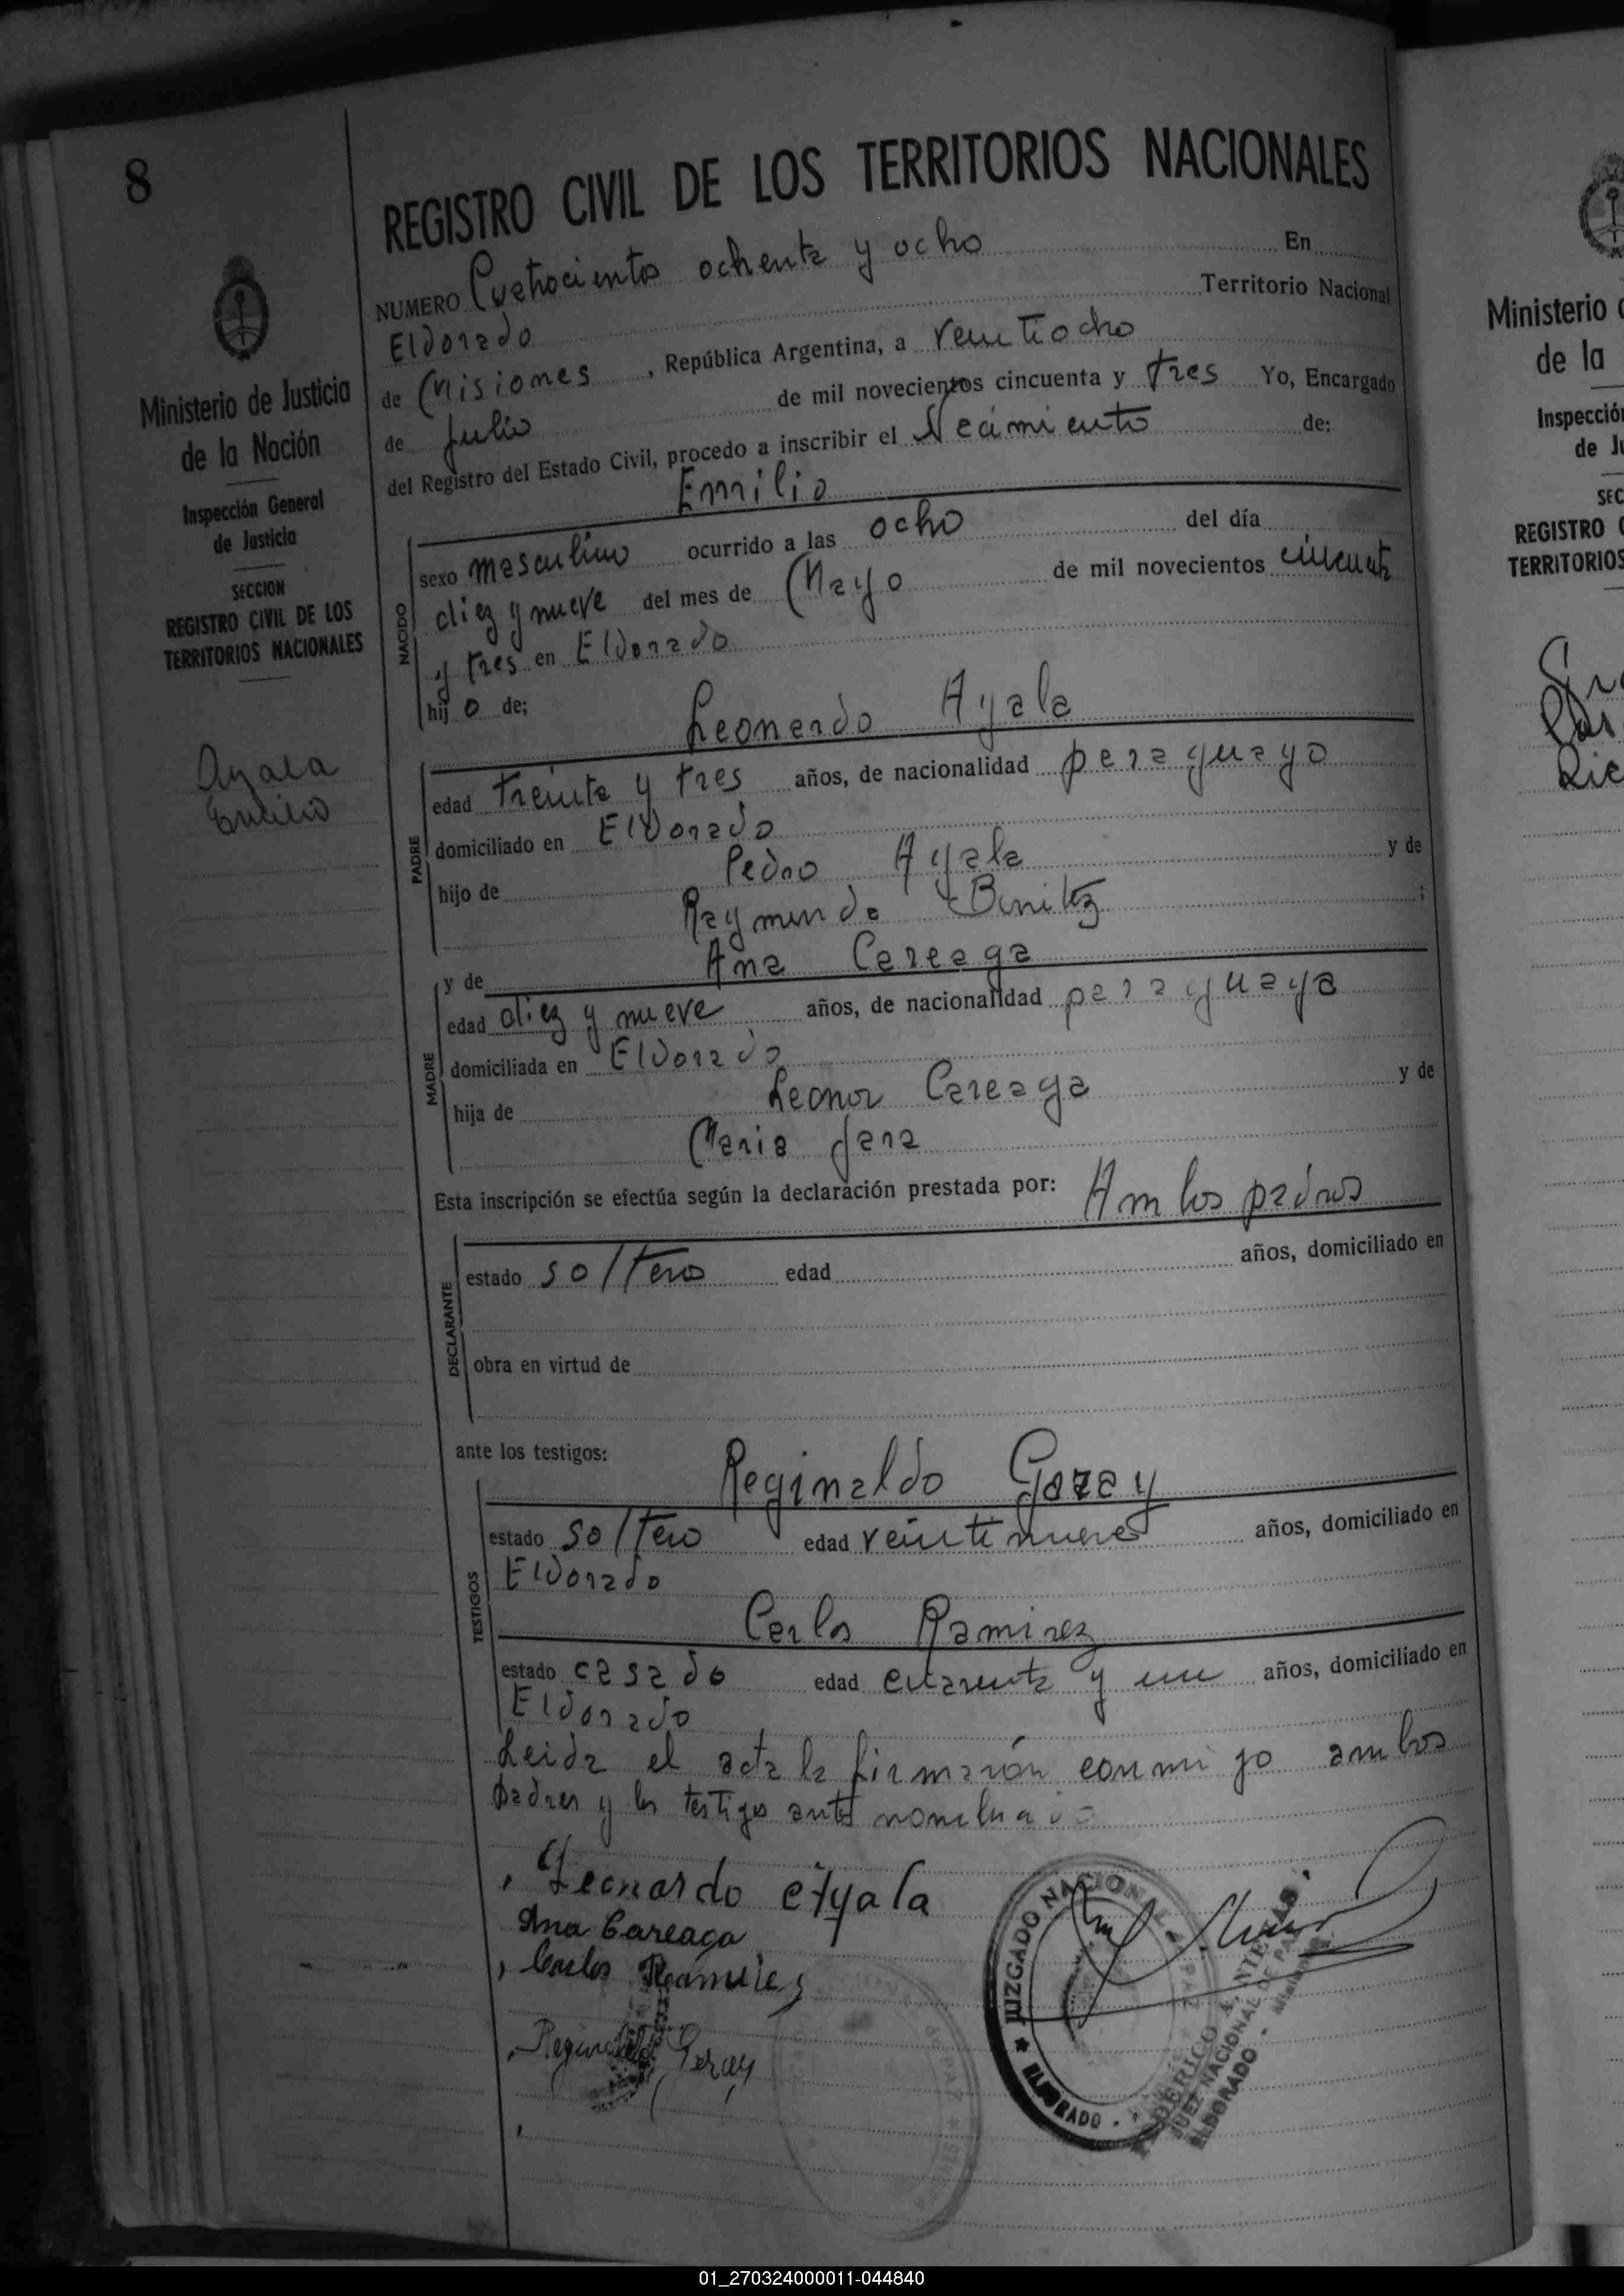 8
REGISTRO CIVIL DE LOS TERRITORIOS NACIONALES
NUMERO Cuatrocientos ochenta y ocho En
Eldorado Territorio Nacional
de Misiones, República Argentina, a veintiocho
de Julio de mil novecientos cincuenta y tres Yo, Encargado
del Registro del Estado Civil, procedo a inscribir el Nacimiento de:
Emilio
NACIDO
sexo masculino ocurrido a las ocho del día
diez y nueve del mes de Mayo de mil novecientos cincuenta
y tres en Eldorado
hij o de;
Leonardo Ayala
PADRE
edad treinta y tres años, de nacionalidad paraguayo
domiciliado en Eldorado
hijo de Pedro Ayala y de
Raymunda Benitez ;
y de Ana Careaga
MADRE
edad diez y nueve años, de nacionalidad paraguaya
domiciliada en Eldorado
hija de Leonor Careaga y de
Maria Jara
Esta inscripción se efectúa según la declaración prestada por: Ambos padres
DECLARANTE
estado solteros edad años, domiciliado en
obra en virtud de
ante los testigos:
Reginaldo Garay
TESTIGOS
estado soltero edad veintinueve años, domiciliado en
Eldorado
Carlos Ramirez
estado casado edad cuarenta y un años, domiciliado en
Eldorado
Leida el acta la firmarón conmigo ambos
padres y los testigos antes nombrado
Leonardo Ayala
Ana Careaga
Carlos Ramirez
Reginaldo Garay
JUZGADO NACIONAL
ELDORADO
JUEZ NACIONAL DE PAZ
ELDORADO - Misiones
Ministerio de Justicia
de la Nación
Inspección General
de Justicia
SECCION
REGISTRO CIVIL DE LOS
TERRITORIOS NACIONALES
Ayala
Emilio
Ministerio
de la
Inspección
de Ju
SEC
REGISTRO
TERRITORIOS
01_270324000011-044840